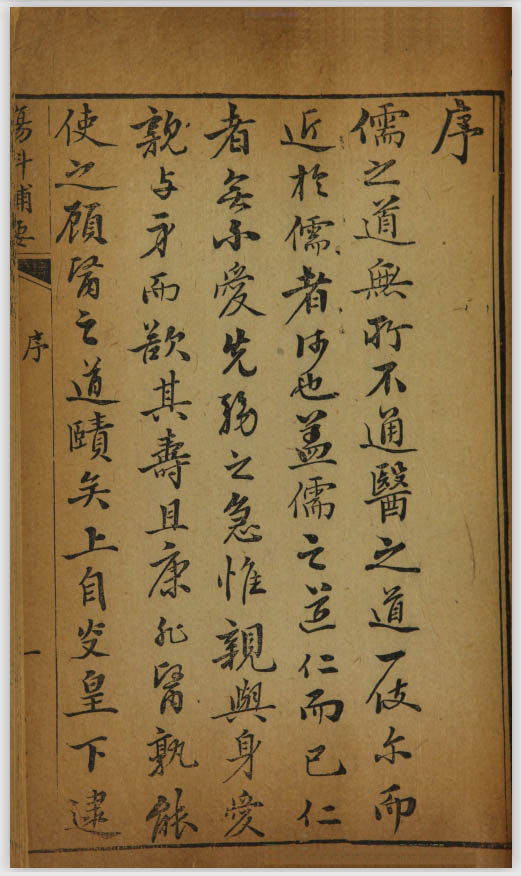 序
儒之道無所不通醫之道一伎尔而
近於儒者何也盖儒之道仁而已仁
者無不愛先務之急惟親與身愛
親与身而欲其壽且康非醫孰能
使之顧醫之道賾矣上自炎皇下逮
傷科補要
序
一